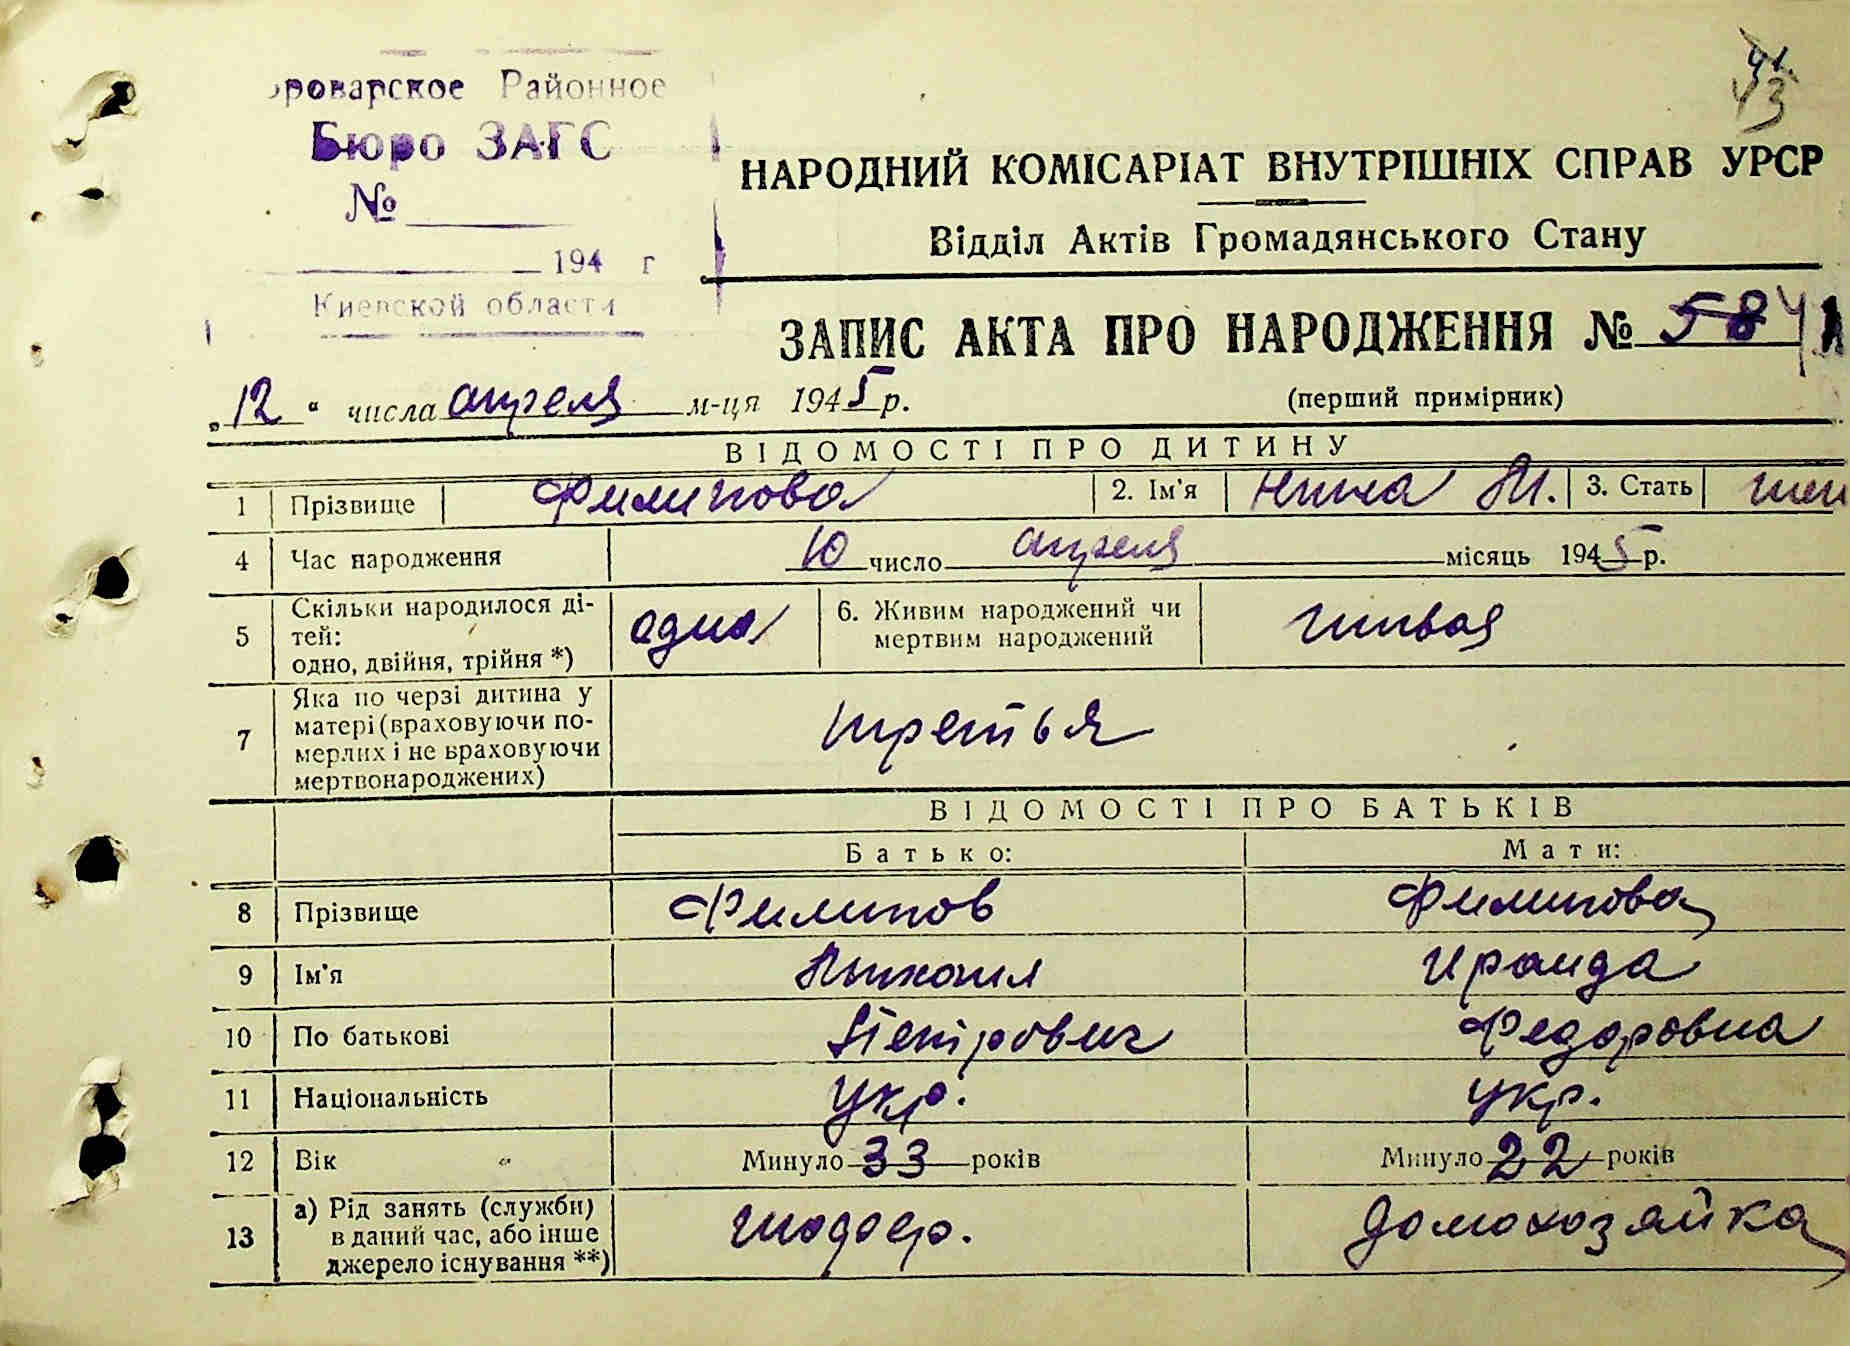 роварское Районное
Бюро ЗАГС
№
194 г
Киевской области
НАРОДНИЙ КОМІСАРІАТ ВНУТРІШНІХ СПРАВ УРСР
Відділ Актів Громадянського Стану
ЗАПИС АКТА ПРО НАРОДЖЕННЯ № 584
„12“ числа апреля м-ця 1945 р.
(перший примірник)
ВІДОМОСТІ ПРО ДИТИНУ
1 Прізвище Филипова 2. Ім'я Нина М. 3. Стать жен
4 Час народження 10 число апреля місяць 1945 р.
5 Скільки народилося ді-
тей:
одно, двійня, трійня *) одна 6. Живим народжений чи
мертвим народжений живая
7 Яка по черзі дитина у
матері (враховуючи по-
мерлих і не враховуючи
мертвонароджених) третья
ВІДОМОСТІ ПРО БАТЬКІВ
Батько: Мати:
8 Прізвище Филипов Филипова
9 Ім'я Михаил Ираида
10 По батькові Петрович Федоровна
11 Національність укр. укр.
12 Вік Минуло 33 років Минуло 22 років
13 а) Рід занять (служби)
в даний час, або інше
джерело існування **) шофер. домохозяйка